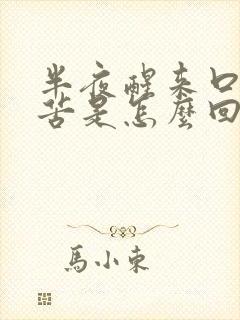 半夜醒来口
苦是怎麼回
馬小東